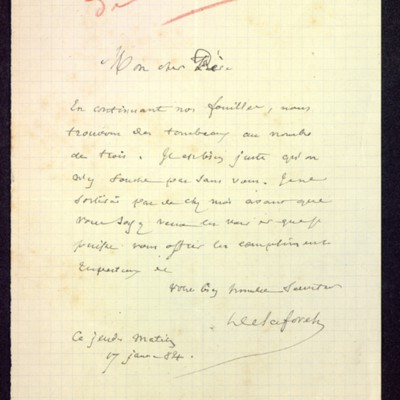 Mon cher Père
En continuant nos fouilles, nous
trouvons des tombeaux au nombre
de trois. Il est bien juste qu'on
n'y touche pas sans vous. Je ne
sortirai pas de chez moi avant que
vous soyez venu les voir et que je
puisse vous offrir les compliments
Votre bien humble Serviteur
Ce jeudi matin
17 janv 84.